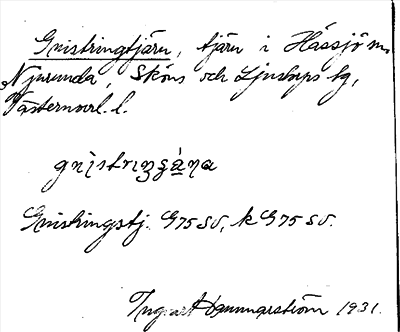 Gnistringtjärn, tjärn i Hässjö m.
Njurunda, Sköns och Ljustorps tg,
Västernorrl. l.
gnistriŋgạ́na
Gnistringstj. G75SO, k G75 SO.
Ingvart Gunnarström 1931.